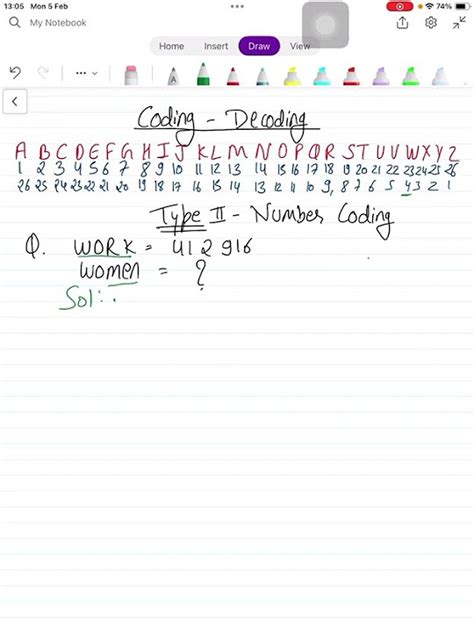 13:05 Mon 5 Feb
74%
My Notebook
Home Insert Draw View
Coding - Decoding
A B C D E F G H I J K L M N O P Q R S T U V W X Y Z
1 2 3 4 5 6 7 8 9 10 11 12 13 14 15 16 17 18 19 20 21 22 23 24 25 26
26 25 24 23 22 21 20 19 18 17 16 15 14 13 12 11 10 9, 8 7 6 5 4 3 2 1
Type II - Number Coding
Q. WORK = 412 916
WOMEN = ?
Sol:.